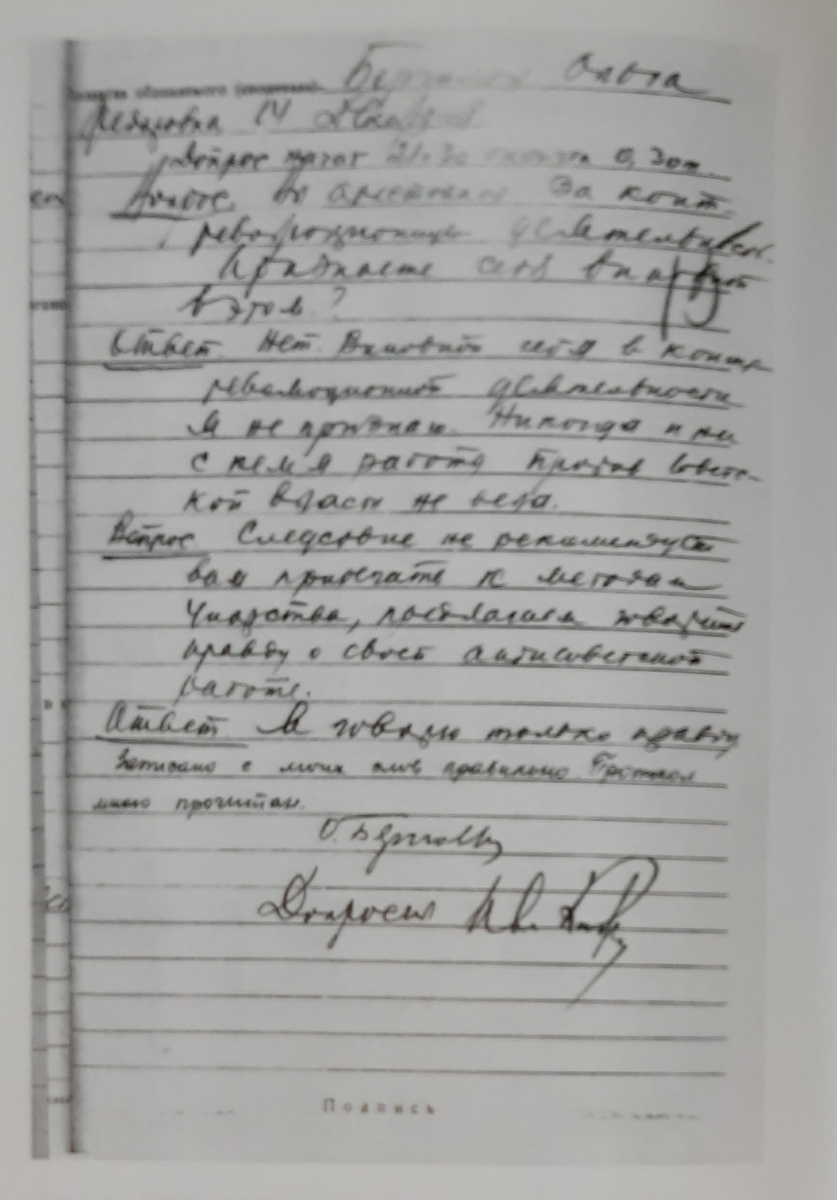 обвиняемого (свидетеля) Берггольц Ольга
14 декабря
Допрос начат 21 ч 30 окончен 0,30 м.
Вопрос. Вы арестованы за конт-
революционную деятельность.
Признаете себя виновной
в этом?
Ответ. Нет. Виновной себя в контр-
революционной деятельности
я не признаю. Никогда и ни
с кем я работу против совет-
ской власти не вела.
Вопрос Следствие не рекомендует
вам прибегать к методам
, предлагаем говорить
правду о своей антисоветской
работе.
Ответ Я говорю только правду
Записано с моих слов правильно. Протокол
мною прочитан.
О. Берггольц
Допросил
Подпись